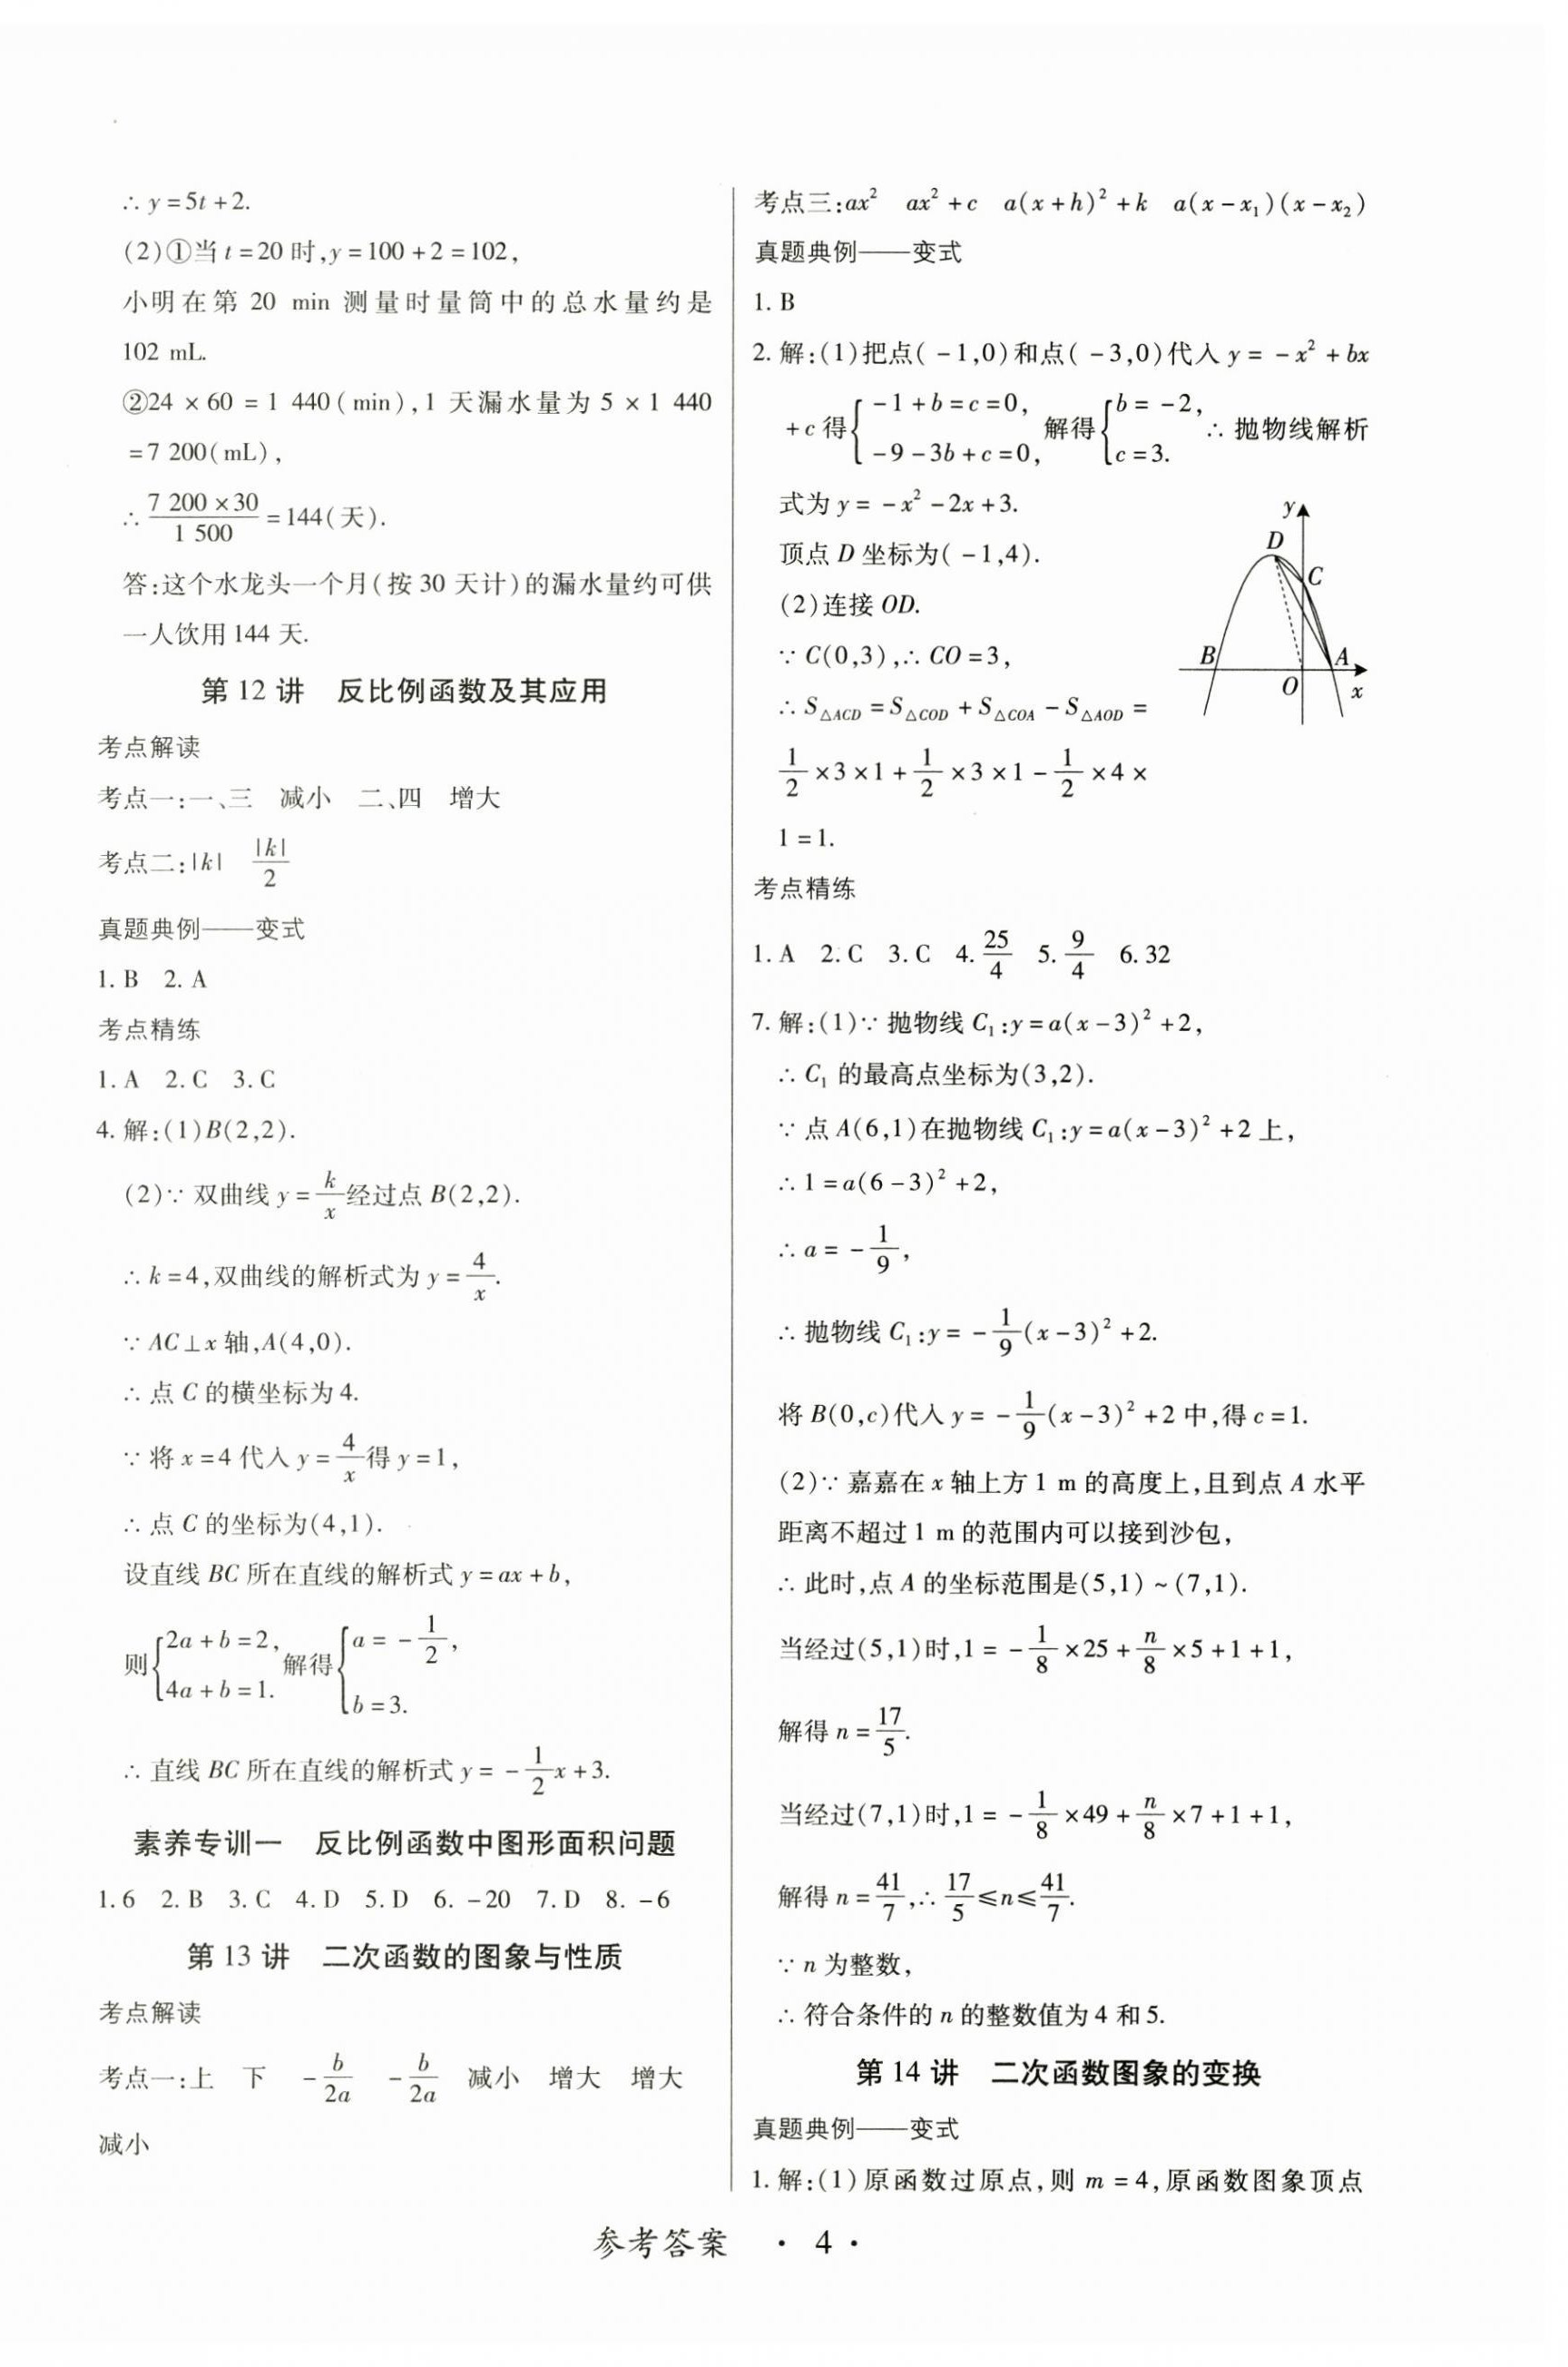 ∴ y=5t+2.
(2)①当 t=20 时,y=100+2=102,
小明在第 20 min 测量时量筒中的总水量约是
102 mL.
②24 × 60 = 1 440(min),1 天漏水量为 5 × 1 440
=7 200(mL),
∴ \frac{7 200×30}{1 500}=144(天).
答:这个水龙头一个月(按 30 天计)的漏水量约可供
一人饮用 144 天.
第 12 讲 反比例函数及其应用
考点解读
考点一:一、三 减小 二、四 增大
考点二:|k| \frac{|k|}{2}
真题典例——变式
1. B 2. A
考点精练
1. A 2. C 3. C
4. 解:(1)B(2,2).
(2)∵ 双曲线 y=\frac{k}{x}经过点 B(2,2).
∴ k=4,双曲线的解析式为 y=\frac{4}{x}.
∵ AC⊥x 轴,A(4,0).
∴ 点 C 的横坐标为 4.
∵ 将 x=4 代入 y=\frac{4}{x}得 y=1,
∴ 点 C 的坐标为(4,1).
设直线 BC 所在直线的解析式 y=ax+b,
则{2a+b=2, 4a+b=1. 解得{a=-\frac{1}{2}, b=3.
∴ 直线 BC 所在直线的解析式 y=-\frac{1}{2}x+3.
素养专训一 反比例函数中图形面积问题
1. 6 2. B 3. C 4. D 5. D 6. -20 7. D 8. -6
第 13 讲 二次函数的图象与性质
考点解读
考点一:上 下 -\frac{b}{2a} -\frac{b}{2a} 减小 增大 增大
减小
考点三:ax² ax²+c a(x+h)²+k a(x-x₁)(x-x₂)
真题典例——变式
1. B
2. 解:(1)把点(-1,0)和点(-3,0)代入 y=-x²+bx
+c 得{-1+b=c=0, -9-3b+c=0, 解得{b=-2, c=3. ∴ 抛物线解析
式为 y=-x²-2x+3.
顶点 D 坐标为(-1,4).
(2)连接 OD.
∵ C(0,3),∴ CO=3,
∴ S△ACD=S△COD+S△COA-S△AOD=
\frac{1}{2}×3×1+\frac{1}{2}×3×1-\frac{1}{2}×4×
1=1.
y
D
C
B
A
O
x
考点精练
1. A 2. C 3. C 4. \frac{25}{4} 5. \frac{9}{4} 6. 32
7. 解:(1)∵ 抛物线 C₁:y=a(x-3)²+2,
∴ C₁ 的最高点坐标为(3,2).
∵ 点 A(6,1)在抛物线 C₁:y=a(x-3)²+2 上,
∴ 1=a(6-3)²+2,
∴ a=-\frac{1}{9},
∴ 抛物线 C₁:y=-\frac{1}{9}(x-3)²+2.
将 B(0,c)代入 y=-\frac{1}{9}(x-3)²+2 中,得 c=1.
(2)∵ 嘉嘉在 x 轴上方 1 m 的高度上,且到点 A 水平
距离不超过 1 m 的范围内可以接到沙包,
∴ 此时,点 A 的坐标范围是(5,1)~(7,1).
当经过(5,1)时,1=-\frac{1}{8}×25+\frac{n}{8}×5+1+1,
解得 n=\frac{17}{5}.
当经过(7,1)时,1=-\frac{1}{8}×49+\frac{n}{8}×7+1+1,
解得 n=\frac{41}{7},∴ \frac{17}{5}≤n≤\frac{41}{7}.
∵ n 为整数,
∴ 符合条件的 n 的整数值为 4 和 5.
第 14 讲 二次函数图象的变换
真题典例——变式
1. 解:(1)原函数过原点,则 m=4,原函数图象顶点
参考答案 · 4 ·